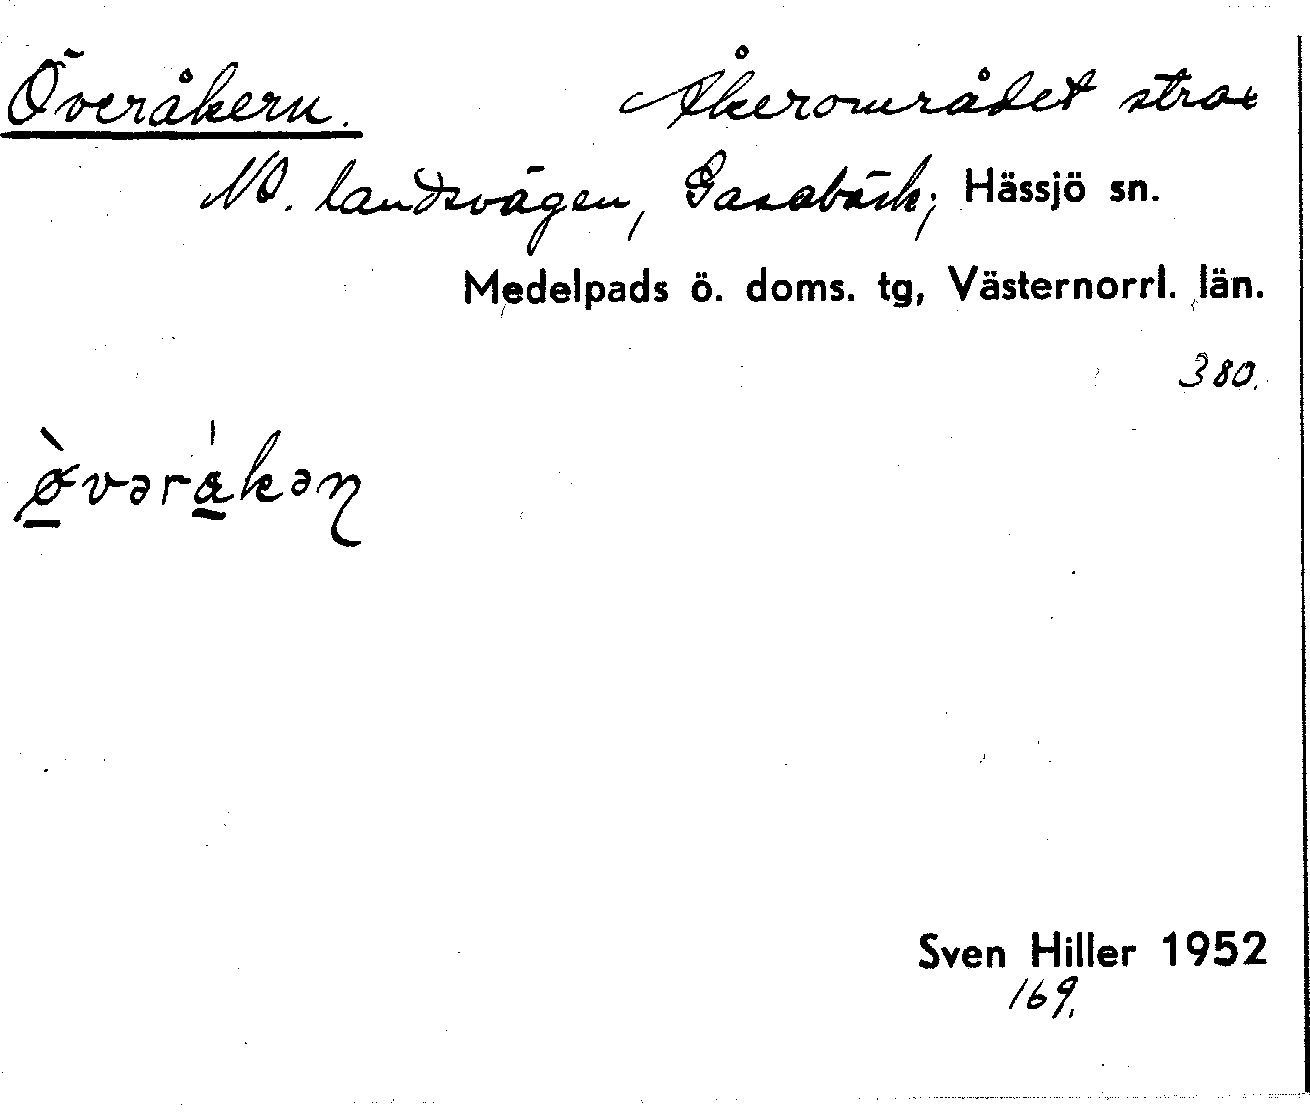 Överåkern. Åkerområdet strax
NO. landsvägen, Gasabäck, Hässjö sn.
Medelpads ö. doms. tg, Västernorrl. län.
380.
Sven Hiller 1952
169.